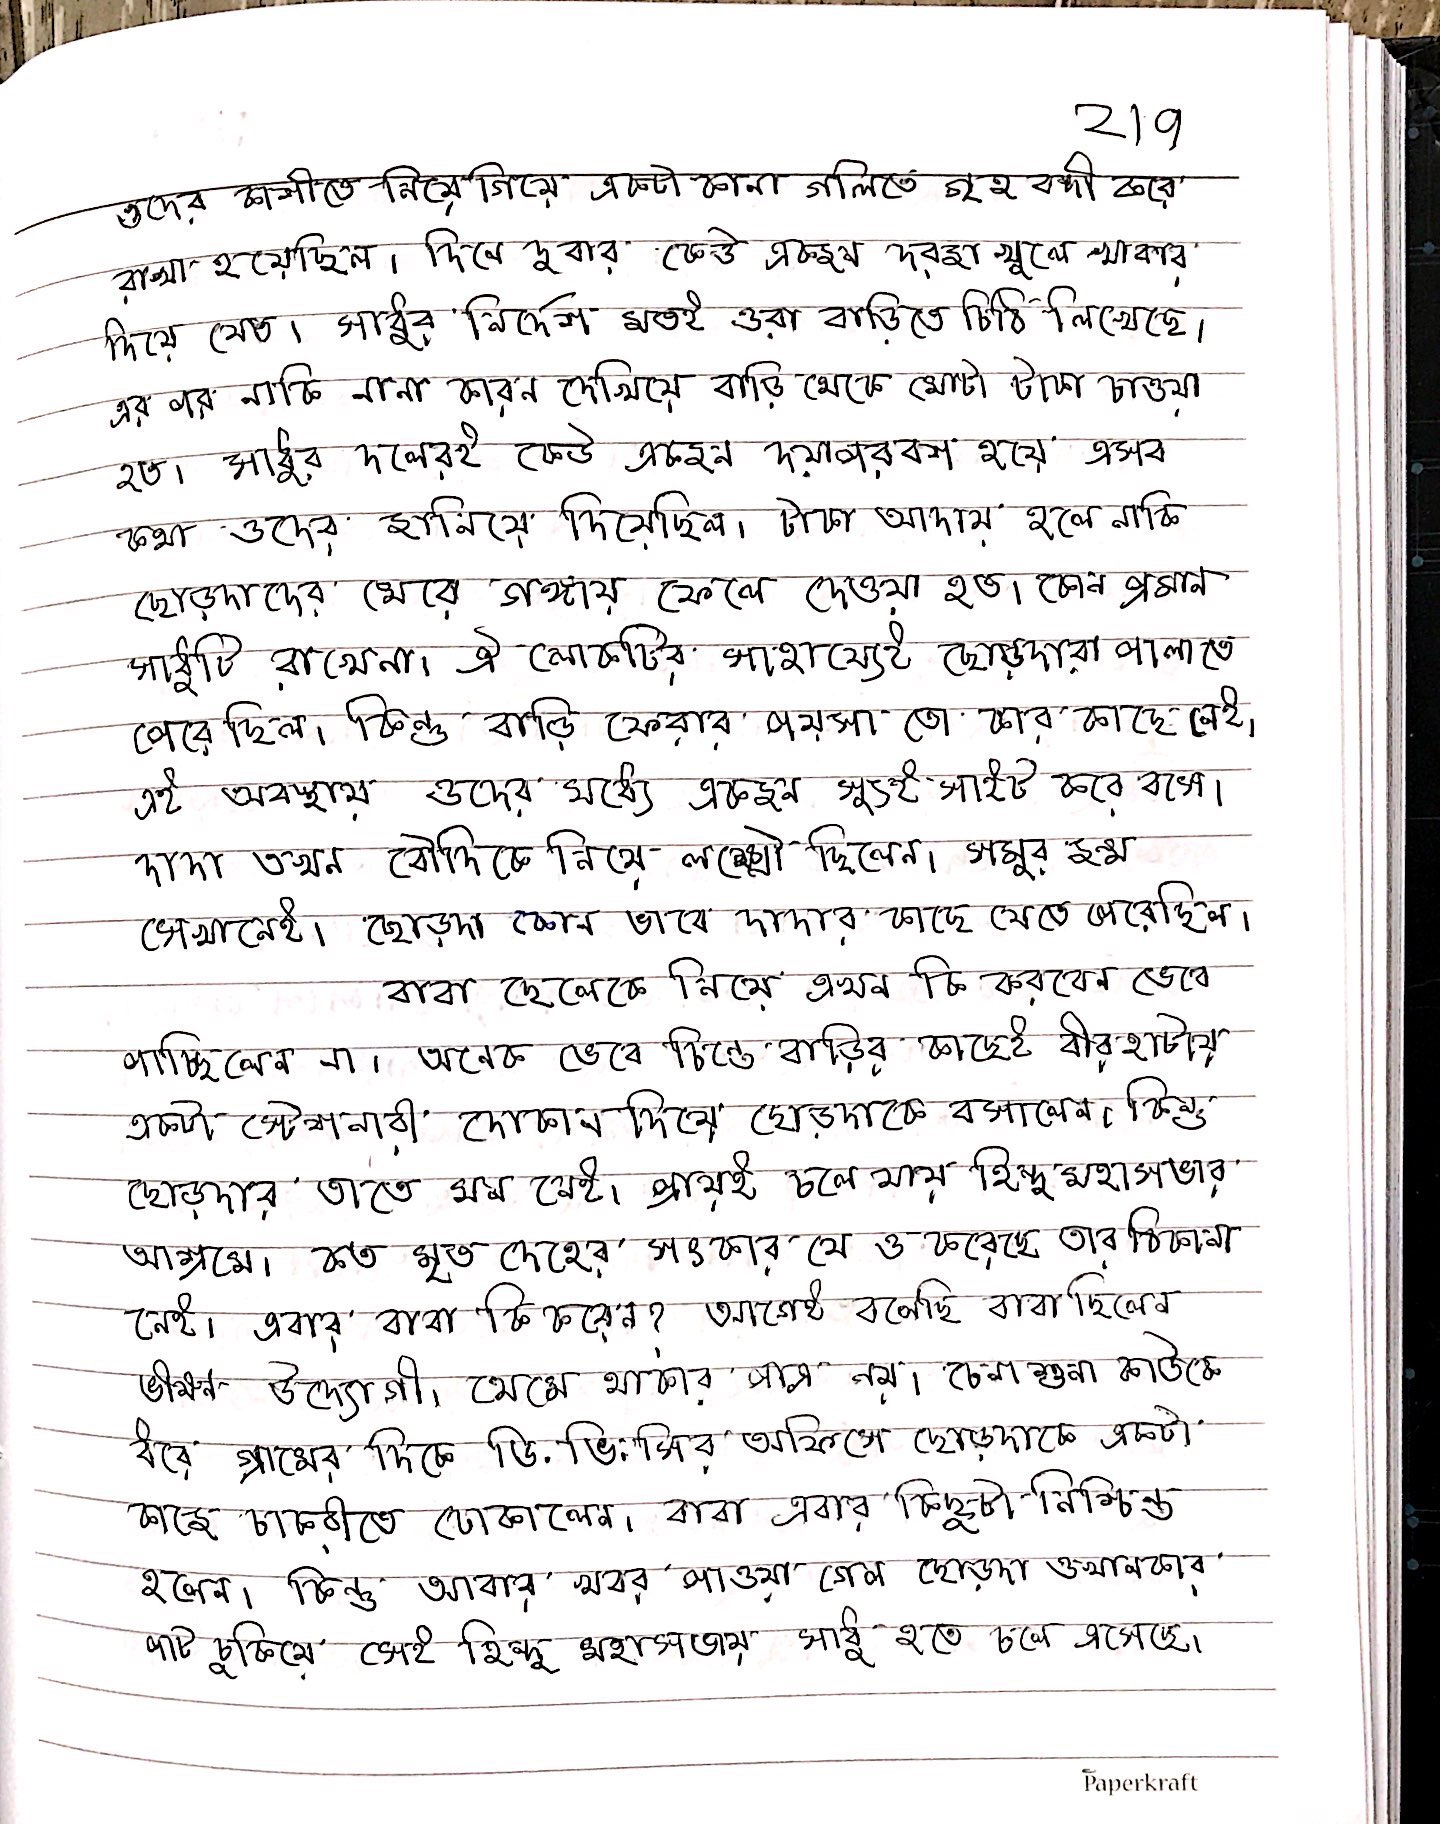 219
ওদের কাশীতে নিয়ে গিয়ে একটা কানা গলিতে গৃহ বন্দী করে
রাখা হয়েছিল। দিনে দুবার কেউ একজন দরজা খুলে খাবার
দিয়ে যেত। সাধুর নির্দেশ মতই ওরা বাড়িতে চিঠি লিখেছে।
এর পর নাকি নানা কারন দেখিয়ে বাড়ি থেকে মোটা টাকা চাওয়া
হত। সাধুর দলেরই কেউ একজন দয়াপরবশ হয়ে এসব
কথা ওদের জানিয়ে দিয়েছিল। টাকা আদায় হলে নাকি
ছোড়দাদের মেরে গঙ্গায় ফেলে দেওয়া হত। কোন প্রমান
সাধুটি রাখেনা। ঐ লোকটির সাহায্যেই ছোড়দারা পালাতে
পেরেছিল। কিন্তু বাড়ি ফেরার পয়সা তো কার কাছে নেই।
এই অবস্থায় ওদের মধ্যে একজন সুইসাইট করে বসে।
দাদা তখন বৌদিকে নিয়ে লক্ষ্ণৌ ছিলেন। সমুর জন্ম
সেখানেই। ছোড়দা কোন ভাবে দাদার কাছে যেতে পেরেছিল।
বাবা ছেলেকে নিয়ে এখন কি করবেন ভেবে
পাচ্ছিলেন না। অনেক ভেবে চিন্তে বাড়ির কাছেই বীরহাটায়
একটা স্টেশনারী দোকান দিয়ে ছোড়দাকে বসালেন। কিন্তু
ছোড়দার তাতে মন নেই। প্রায়ই চলে যায় হিন্দু মহাসভার
আশ্রমে। কত মৃত দেহের সৎকার যে ও করেছে তার ঠিকানা
নেই। এবার বাবা কি করেন? আগেই বলেছি বাবা ছিলেন
ভীষন উদ্যোগী। থেমে থাকার পাত্র নয়। চেনা শুনা কাউকে
ধরে গ্রামের দিকে ডি. ভি. সির অফিসে ছোড়দাকে একটা
কাজে চাকরীতে ঢোকালেন। বাবা এবার কিছুটা নিশ্চিন্ত
হলেন। কিন্তু আবার খবর পাওয়া গেল ছোড়দা ওখানকার
পাট চুকিয়ে সেই হিন্দু মহাসভায় সাধু হতে চলে এসেছে।
Paperkraft